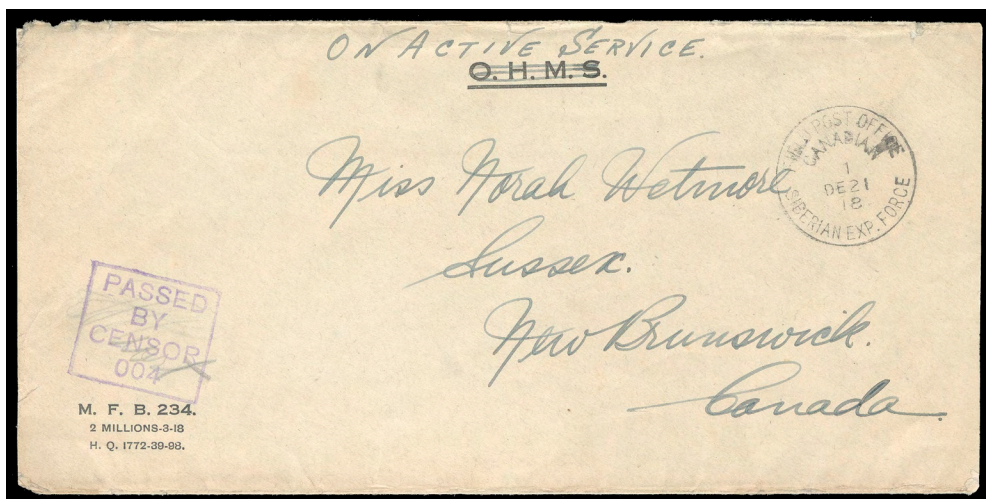 ON ACTIVE SERVICE.
O. H. M. S.
FIELD POST OFFICE
CANADIAN
1
DE 21
18
SIBERIAN EXP. FORCE
Miss Norah Wetmore
Sussex.
New Brunswick.
Canada.
PASSED
BY
CENSOR
004
M. F. B. 234.
2 MILLIONS-3-18
H. Q. 1772-39-98.